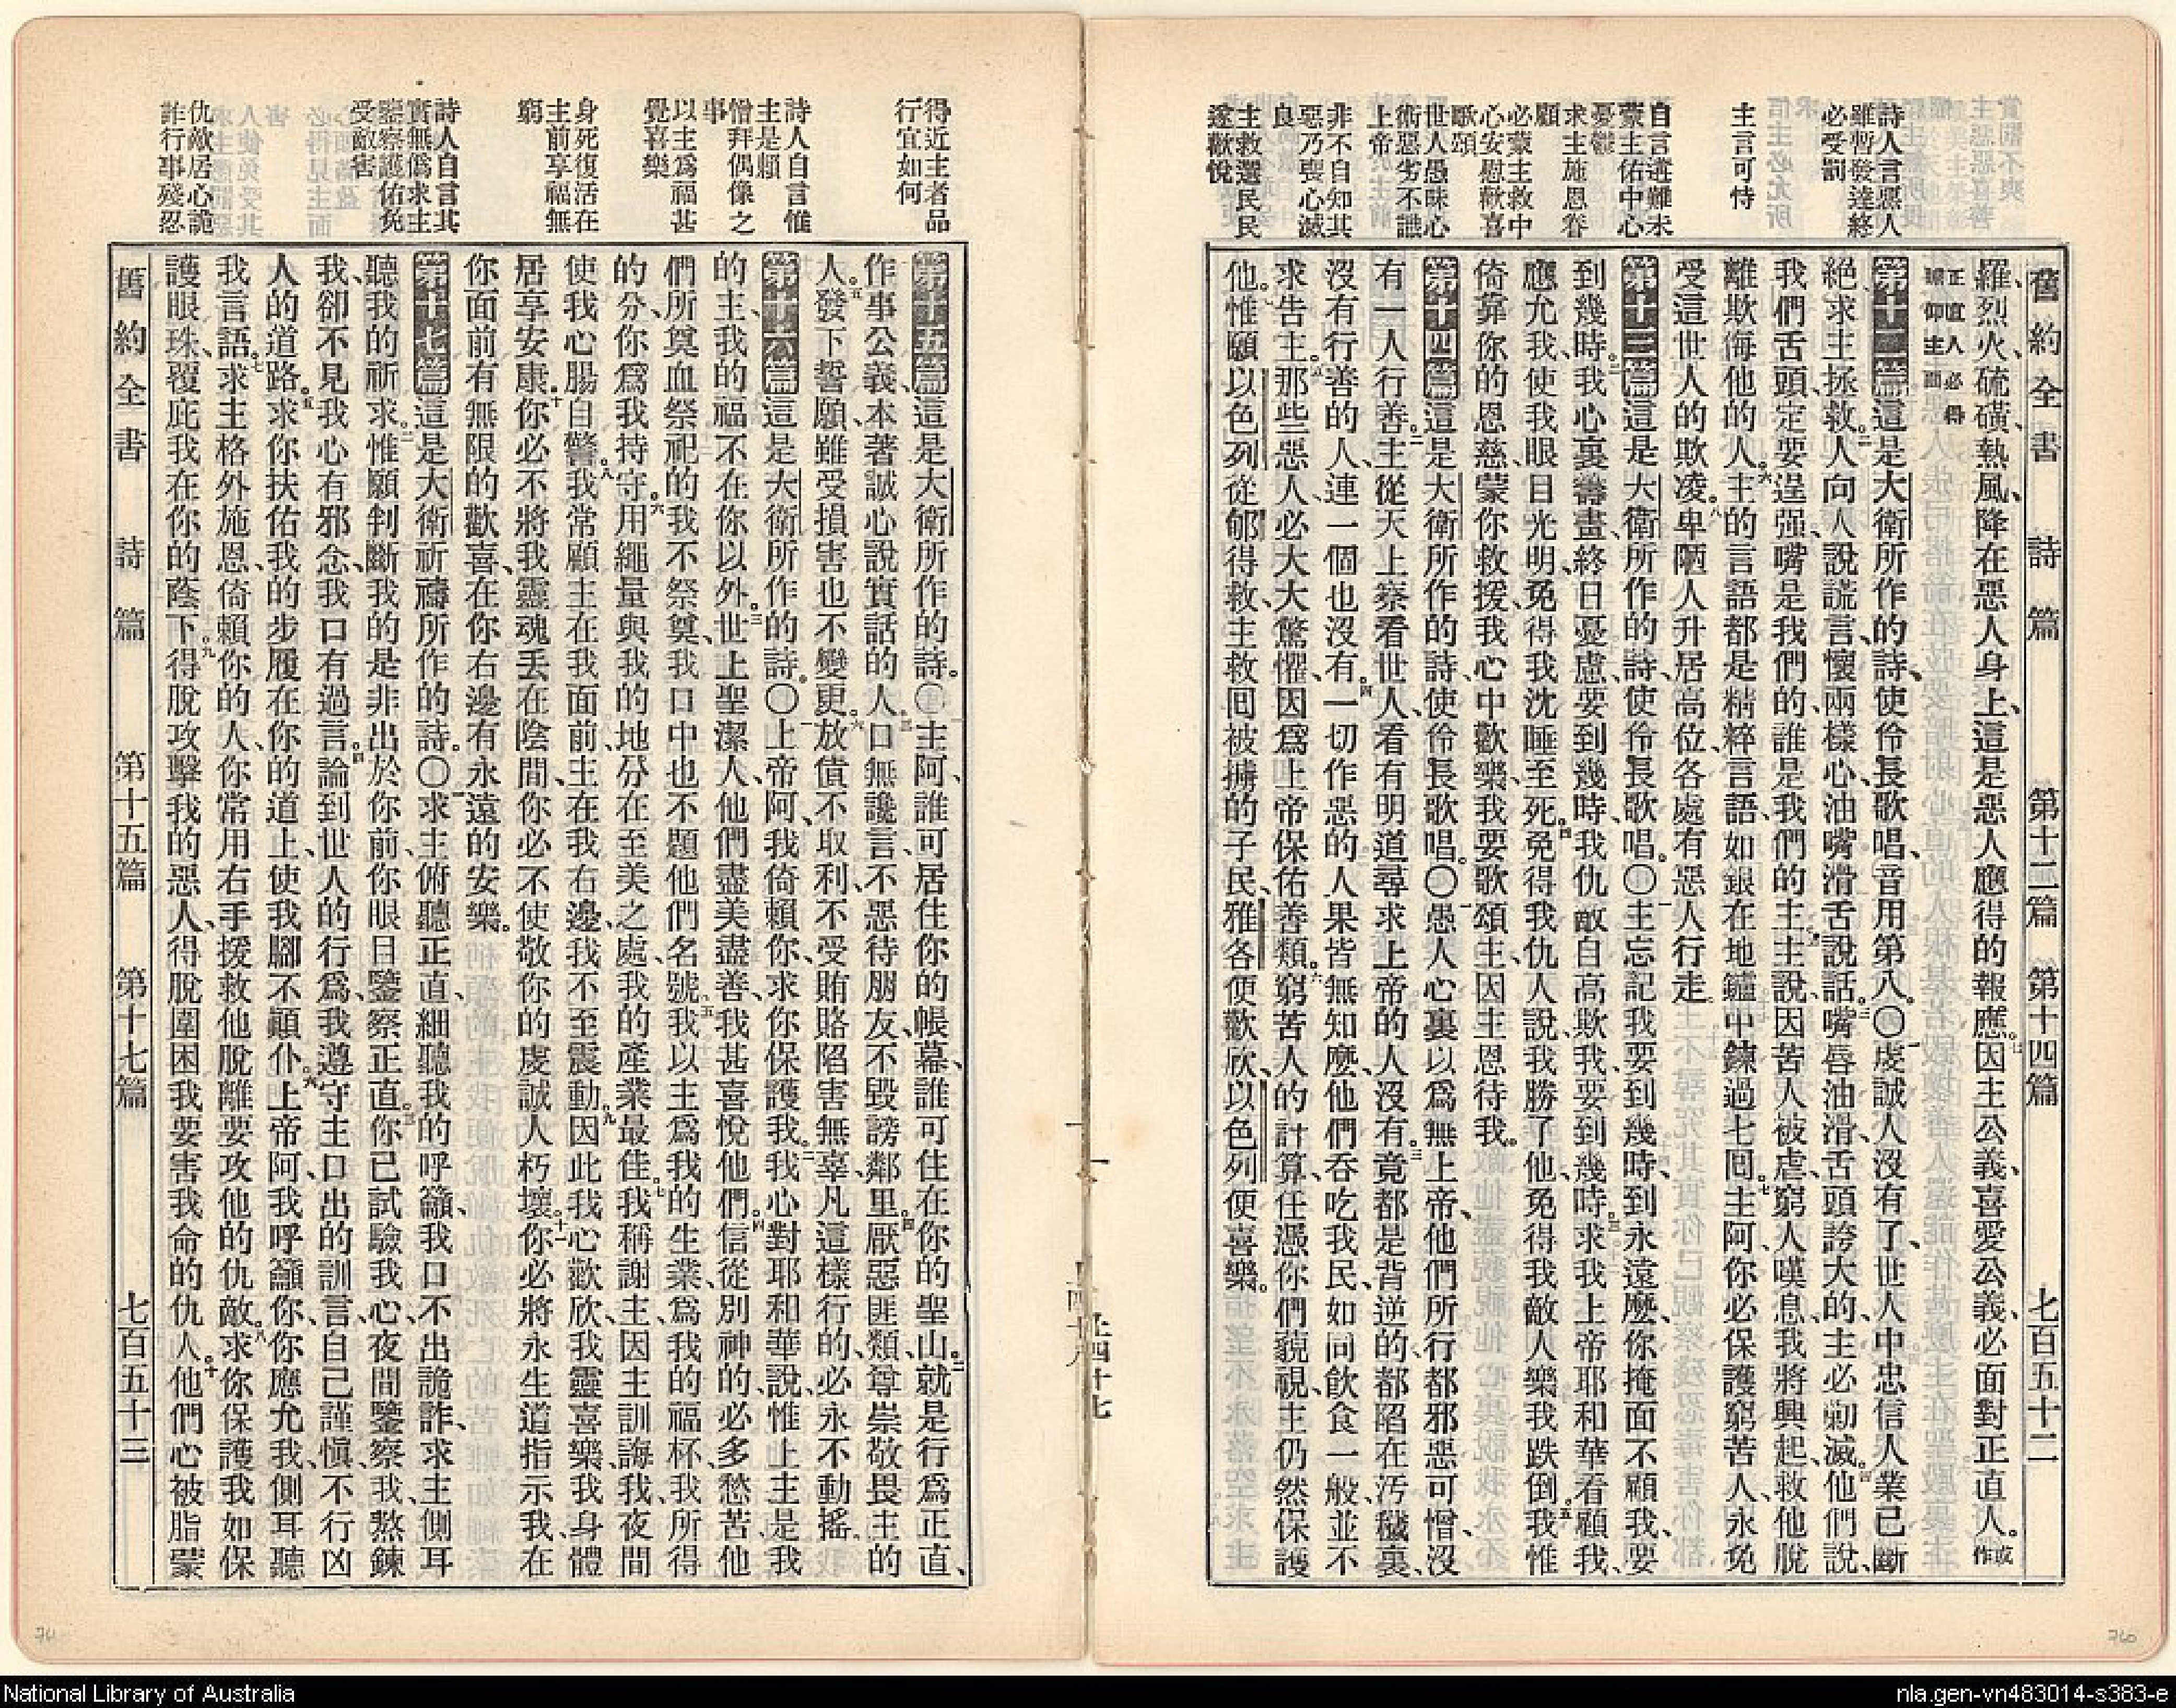 舊約全書 詩篇 第十二篇 第十四篇 七百五十二
詩人言惡人
雖暫發達終
必受罰
主言可恃
自言遭難未
蒙主佑中心
憂鬱
求主施恩眷
顧
必蒙主救中
心安慰歡喜
歌頌
世人愚昧心
術惡劣不識
上帝
非不自知其
惡乃喪心滅
良
主救選民民
遂歡悅
羅、烈火、硫磺、熱風、降在惡人身上、這是惡人應得的報應。七因主公義、喜愛公義、必面對正直人。或作
正直人必得
瞻仰主面
第十二篇這是大衛所作的詩、使伶長歌唱、音用第八。〇一虔誠人沒有了、世人中忠信人業已斷
絕、求主拯救。二人向人說謊言、懷兩樣心、油嘴滑舌說話。三嘴唇油滑、舌頭誇大的、主必剪滅。四他們說、
我們舌頭、定要逞强、嘴是我們的、誰是我們的主。五主說、因苦人被虐、窮人嘆息、我將興起、救他脫
離欺侮他的人。六主的言語都是精粹言語、如銀在地鑪中鍊過七囘。七主阿、你必保護窮苦人、永免
受這世人的欺凌。八卑陋人升居高位、各處有惡人行走。
第十三篇這是大衛所作的詩、使伶長歌唱。〇一主忘記我要到幾時、到永遠麽、你掩面不顧我、要
到幾時。二我心裏籌畫、終日憂慮、要到幾時、我仇敵自高欺我、要到幾時。三求我上帝耶和華看顧我、
應允我、使我眼目光明、免得我沈睡至死。四免得我仇人說、我勝了他、免得我敵人樂我跌倒。五我惟
倚靠你的恩慈、蒙你救援、我心中歡樂、我要歌頌主、因主恩待我。
第十四篇這是大衛所作的詩、使伶長歌唱。〇一愚人心裏以爲無上帝、他們所行都邪惡可憎、沒
有一人行善。二主從天上察看世人、看有明道尋求上帝的人沒有。三竟都是背逆的、都陷在汚穢裏、
沒有行善的人、連一個也沒有。四一切作惡的人、果皆無知麽、他們吞吃我民、如同飲食一般、並不
求告主。五那些惡人、必大大驚懼、因爲上帝保佑善類。六窮苦人的計算、任憑你們藐視、主仍然保護
他。七惟願以色列從郇得救、主救囘被擄的子民、雅各便歡欣、以色列便喜樂。
得近主者品
行宜如何
詩人自言惟
主是賴
憎拜偶像之
事
以主爲福甚
覺喜樂
身死復活在
主前享福無
窮
詩人自言其
實無僞求主
鑒察護佑免
受敵害
仇敵居心詭
詐行事殘忍
第十五篇這是大衛所作的詩。〇一主阿、誰可居住你的帳幕、誰可住在你的聖山。二就是行爲正直、
作事公義、本著誠心說實話的人。三口無讒言、不惡待朋友、不毀謗鄰里。四厭惡匪類、尊崇敬畏主的
人、五發下誓願、雖受損害也不變更。六放債不取利、不受賄賂陷害無辜、凡這樣行的、必永不動搖。
第十六篇這是大衛所作的詩。〇一上帝阿、我倚賴你、求你保護我。二我心對耶和華說、惟上主是我
的主、我的福不在你以外。三世上聖潔人、他們盡美盡善、我甚喜悅他們。四信從別神的、必多愁苦、他
們所奠血祭祀的、我不祭奠、我口中也不題他們名號。五我以主爲我的生業、爲我的福杯、我所得
的分、你爲我持守。六用繩量與我的地分、在至美之處、我的產業最佳。七我稱謝主、因主訓誨我、夜間
使我心腸自警。八我常顧主在我面前、主在我右邊、我不至震動。九因此我心歡欣、我靈喜樂、我身體
居享安康。十你必不將我靈魂丟在陰間、你必不使敬你的虔誠人朽壞。十一你必將永生道指示我、在
你面前有無限的歡喜、在你右邊有永遠的安樂。
第十七篇這是大衛祈禱所作的詩。〇一求主俯聽正直、細聽我的呼籲、我口不出詭詐、求主側耳
聽我的祈求。二惟願判斷我的是非出於你前、你眼目鑒察正直。三你已試驗我心、夜間鑒察我、熬鍊
我、卻不見我心有邪念、我口有過言。四論到世人的行爲、我遵守主口出的訓言、自己謹愼不行凶
人的道路。五求你扶佑我的步履在你的道上、使我腳不顚仆。六上帝阿、我呼籲你、你應允我、側耳聽
我言語。七求主格外施恩、倚賴你的人、你常用右手援救他脫離要攻他的仇敵。八求你保護我、如保
護眼珠、覆庇我在你的蔭下。九得脫攻擊我的惡人、得脫圍困我要害我命的仇人。十他們心被脂蒙
舊約全書 詩篇 第十五篇 第十七篇 七百五十三
National Library of Australia
nla.gen-vn483014-s383-e